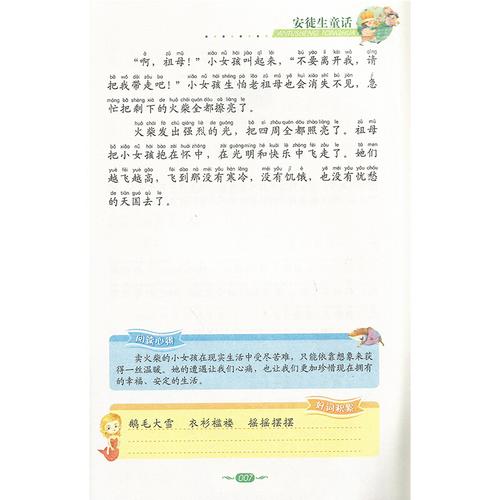 安徒生童话
ANTUSHENG TONGHUA
“啊，祖母！”小女孩叫起来，“不要离开我，请
把我带走吧！”小女孩生怕老祖母也会消失不见，急
忙把剩下的火柴全都擦亮了。
火柴发出强烈的光，把四周全都照亮了。祖母
把小女孩抱在怀中，在光明和快乐中飞走了。她们
越飞越高，飞到那没有寒冷，没有饥饿，也没有忧愁
的天国去了。
阅读心得
卖火柴的小女孩在现实生活中受尽苦难，只能依靠想象来获
得一丝温暖。她的遭遇让我们心痛，也让我们更加珍惜现在拥有
的幸福、安定的生活。
好词积累
鹅毛大雪 衣衫褴褛 摇摇摆摆
007